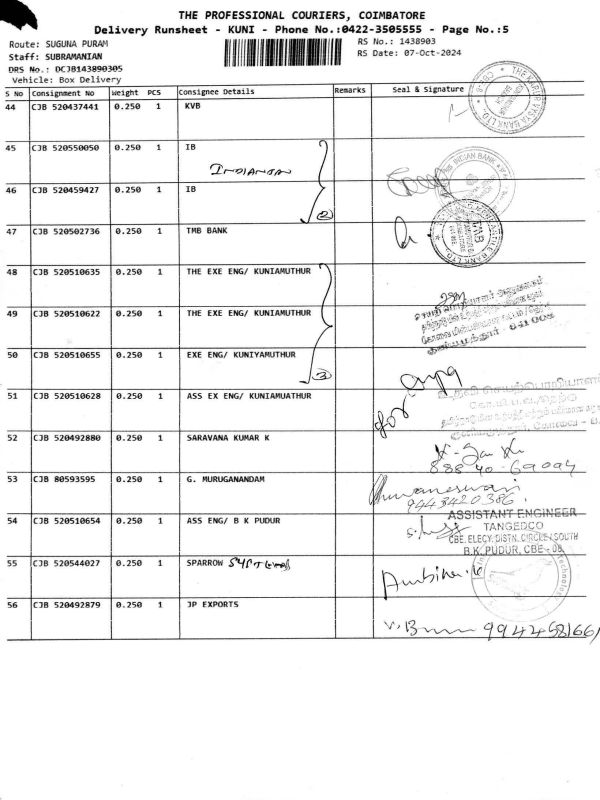 THE PROFESSIONAL COURIERS, COIMBATORE
Delivery Runsheet - KUNI - Phone No.:0422-3505555 - Page No.:5
Route: SUGUNA PURAM RS No.: 1438903
Staff: SUBRAMANIAN RS Date: 07-Oct-2024
DRS No.: DCJB143890305
Vehicle: Box Delivery
S No Consignment No Weight PCS Consignee Details Remarks Seal & Signature
44 CJB 520437441 0.250 1 KVB
45 CJB 520550050 0.250 1 IB
46 CJB 520459427 0.250 1 IB
2
47 CJB 520502736 0.250 1 TMB BANK
TMB
48 CJB 520510635 0.250 1 THE EXE ENG/ KUNIAMUTHUR
49 CJB 520510622 0.250 1 THE EXE ENG/ KUNIAMUTHUR
50 CJB 520510655 0.250 1 EXE ENG/ KUNIYAMUTHUR
3
51 CJB 520510628 0.250 1 ASS EX ENG/ KUNIAMUATHUR
52 CJB 520492880 0.250 1 SARAVANA KUMAR K
53 CJB 80593595 0.250 1 G. MURUGANANDAM
9443420386
54 CJB 520510654 0.250 1 ASS ENG/ B K PUDUR
ASSISTANT ENGINEER
TANGEDCO
CBE. ELECY. DISTN. CIRCLE / SOUTH
B.K. PUDUR, CBE - 08
55 CJB 520544027 0.250 1 SPARROW
56 CJB 520492879 0.250 1 JP EXPORTS